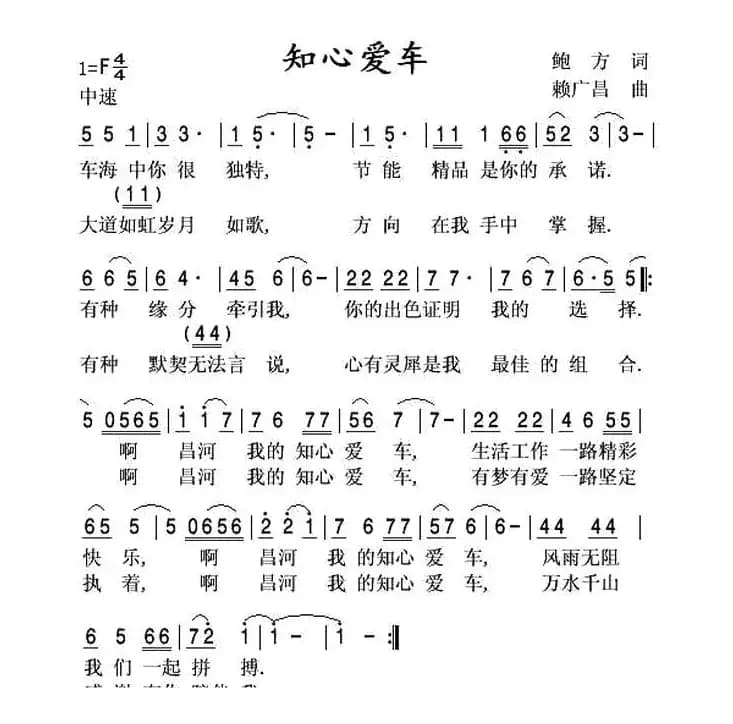 知心爱车
1=F 4/4
鲍 方 词
中速
赖广昌 曲
5 5 1 | 3 3· | 1 5· | 5 – | 1 5· | 11 1 66 | 52 3 | 3 – |
车海 中你 很 独特, 节 能 精品 是你的 承 诺.
(11)
大道如虹岁 月 如歌, 方 向 在我 手中 掌 握.
6 6 5 | 6 4· | 45 6 | 6 – | 22 22 | 7 7· | 7 6 7 | 6·5 5 :
有种 缘 分 牵引我, 你的出色证明 我的 选 择.
(44)
有种 默契无法言 说, 心有灵犀是我 最佳 的 组 合.
5 0565 | 1 1 7 | 7 6 77 | 56 7 | 7 – | 22 22 | 4 6 55 |
啊 昌河 我的 知心 爱 车, 生活工作 一路精彩
啊 昌河 我的 知心 爱 车, 有梦有爱 一路坚定
65 5 | 5 0656 | 2 2 1 | 7 6 77 | 57 6 | 6 – | 44 44 |
快 乐, 啊 昌河 我 的知心 爱 车, 风雨无阻
执 着, 啊 昌河 我 的知心 爱 车, 万水千山
6 5 66 | 72 1 | 1 – | 1 – :||
我 们 一起 拼 搏.